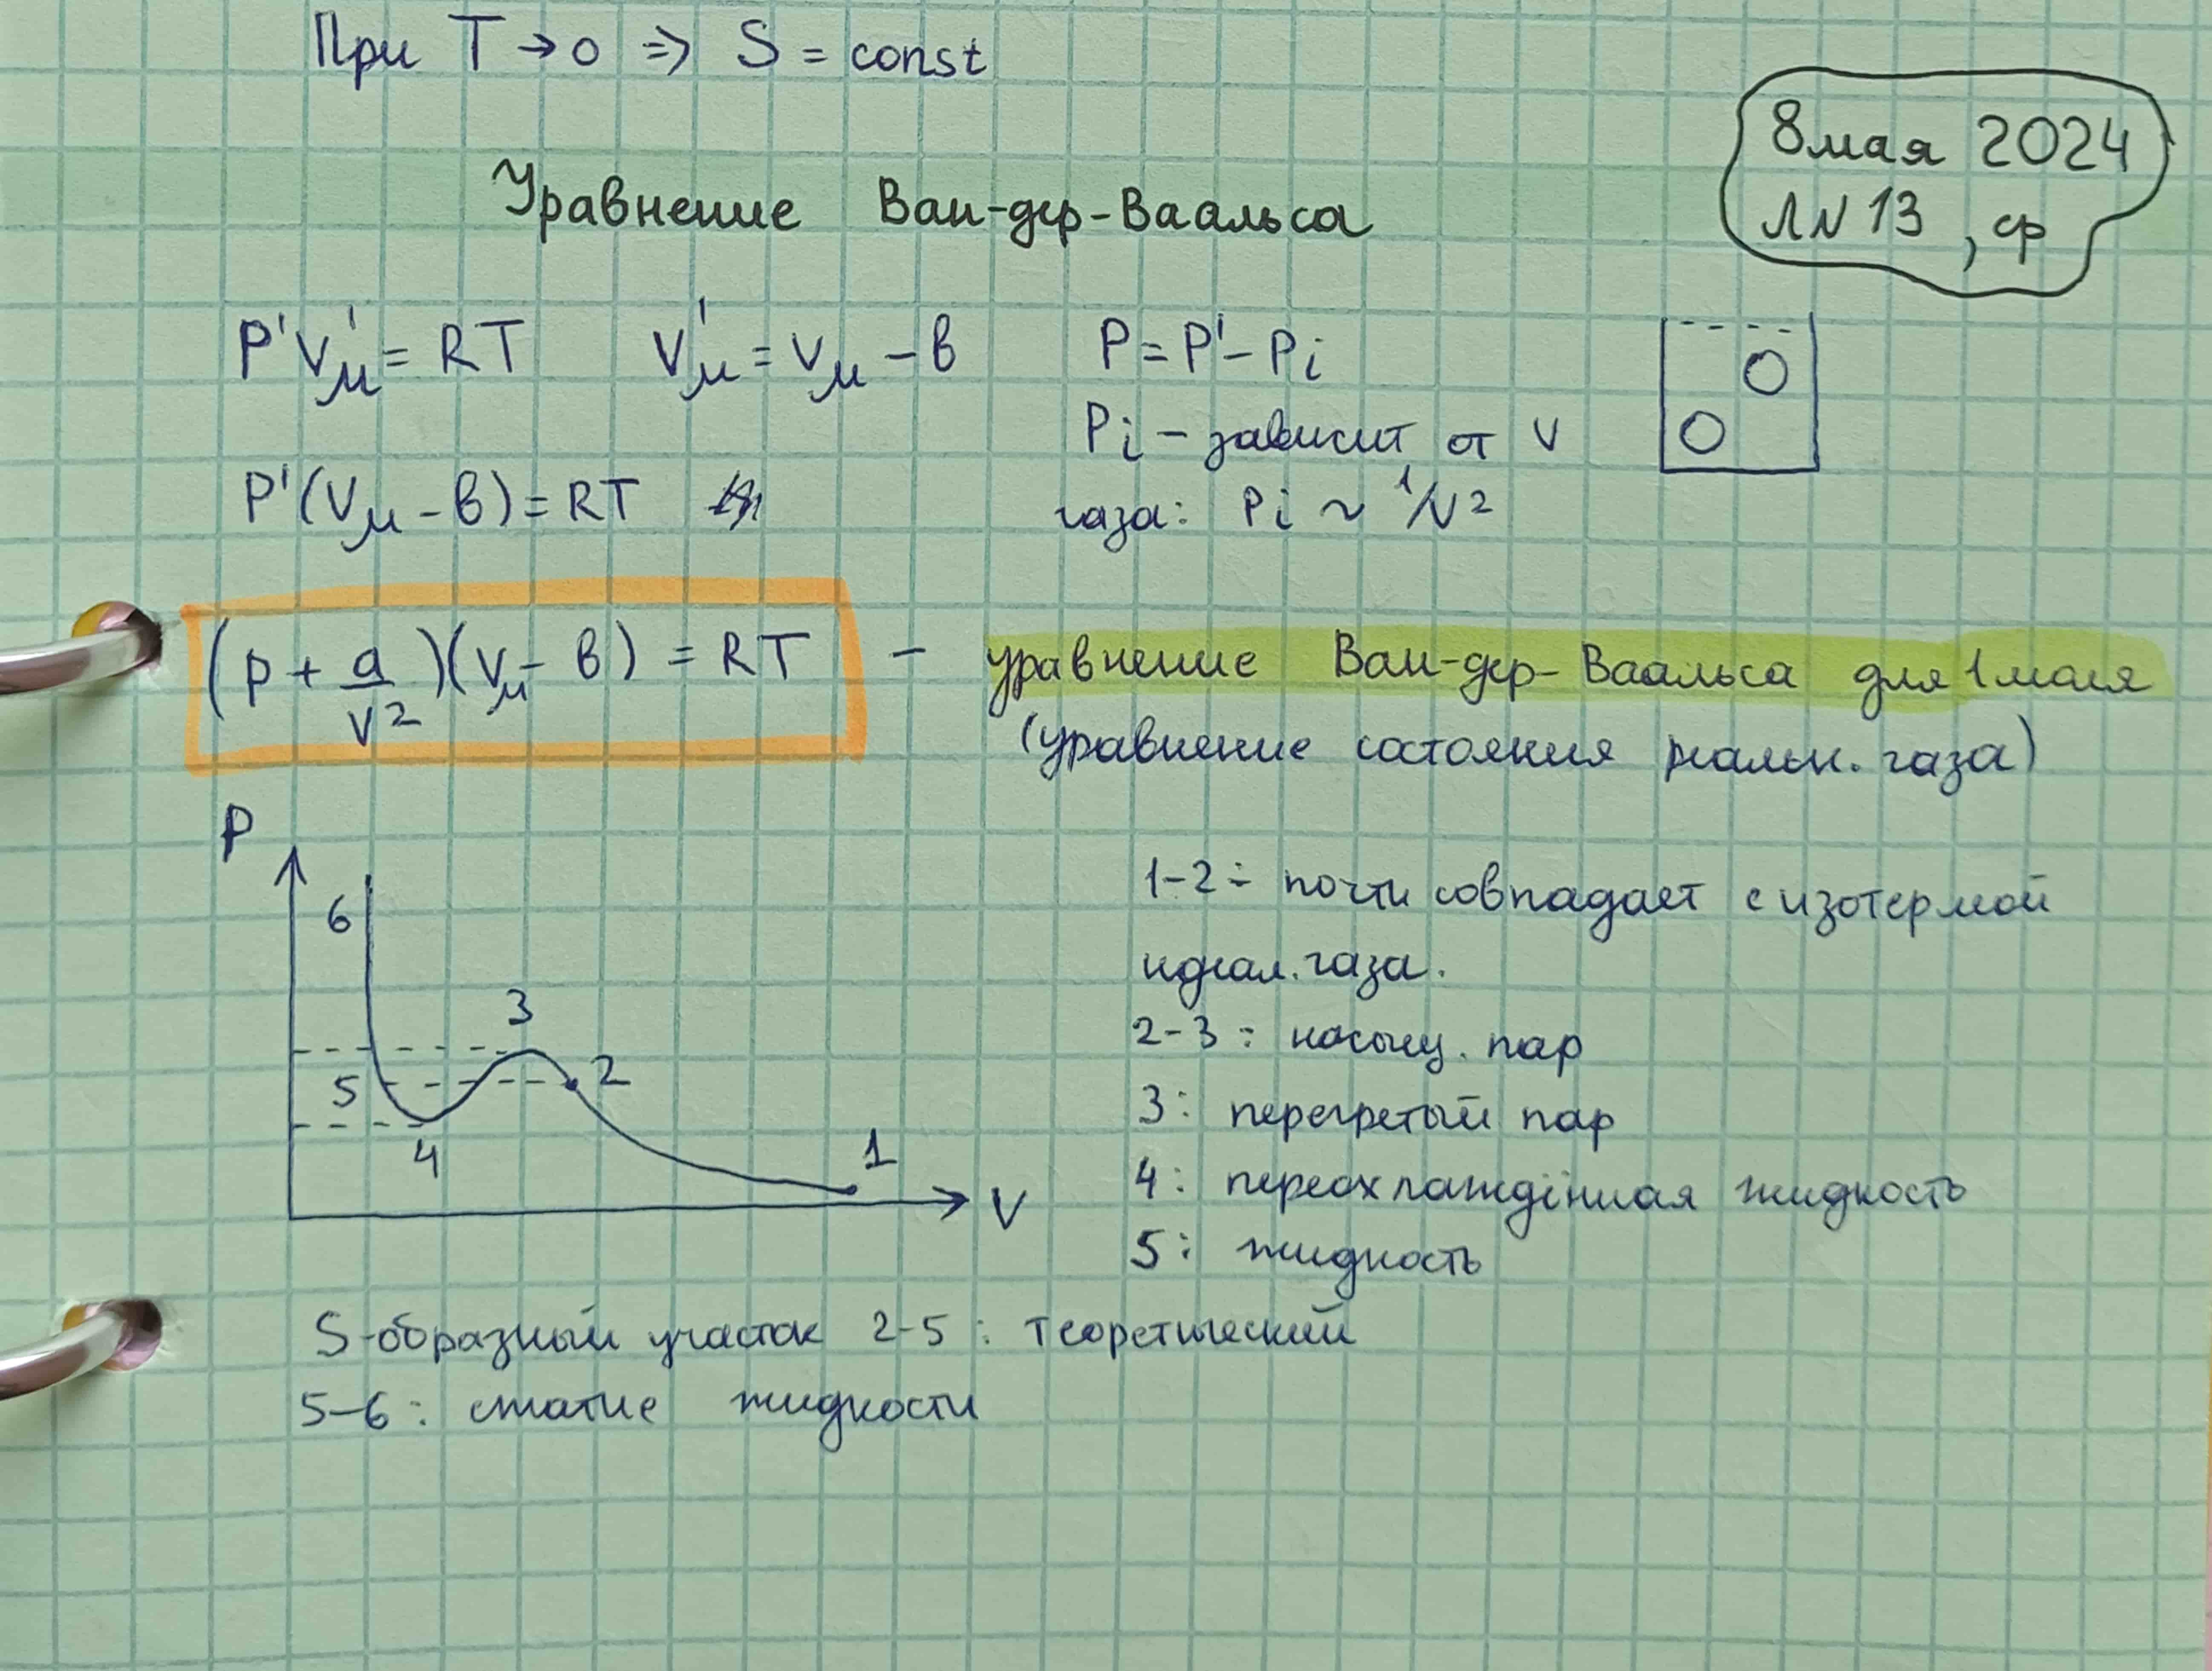 При T → 0 ⇒ S = const
8 мая 2024
ЛN 13 , ср
Уравнение Ван-дер-Ваальса
P'V'μ = RT V'μ = Vμ − в P = P' − Pi
Pi − зависит от V
P'(Vμ − в) = RT газа: Pi ~ 1/V²
(p + a/V²)(Vμ − в) = RT − уравнение Ван-дер-Ваальса для 1 моля
(уравнение состояния реальн. газа)
P
6
3
5
2
4
1
V
1-2 : почти совпадает с изотермой
идеал. газа.
2-3 : насыщ. пар
3: перегретый пар
4: переохлаждённая жидкость
5: жидкость
S-образный участок 2-5 : теоретический
5-6 : сжатие жидкости